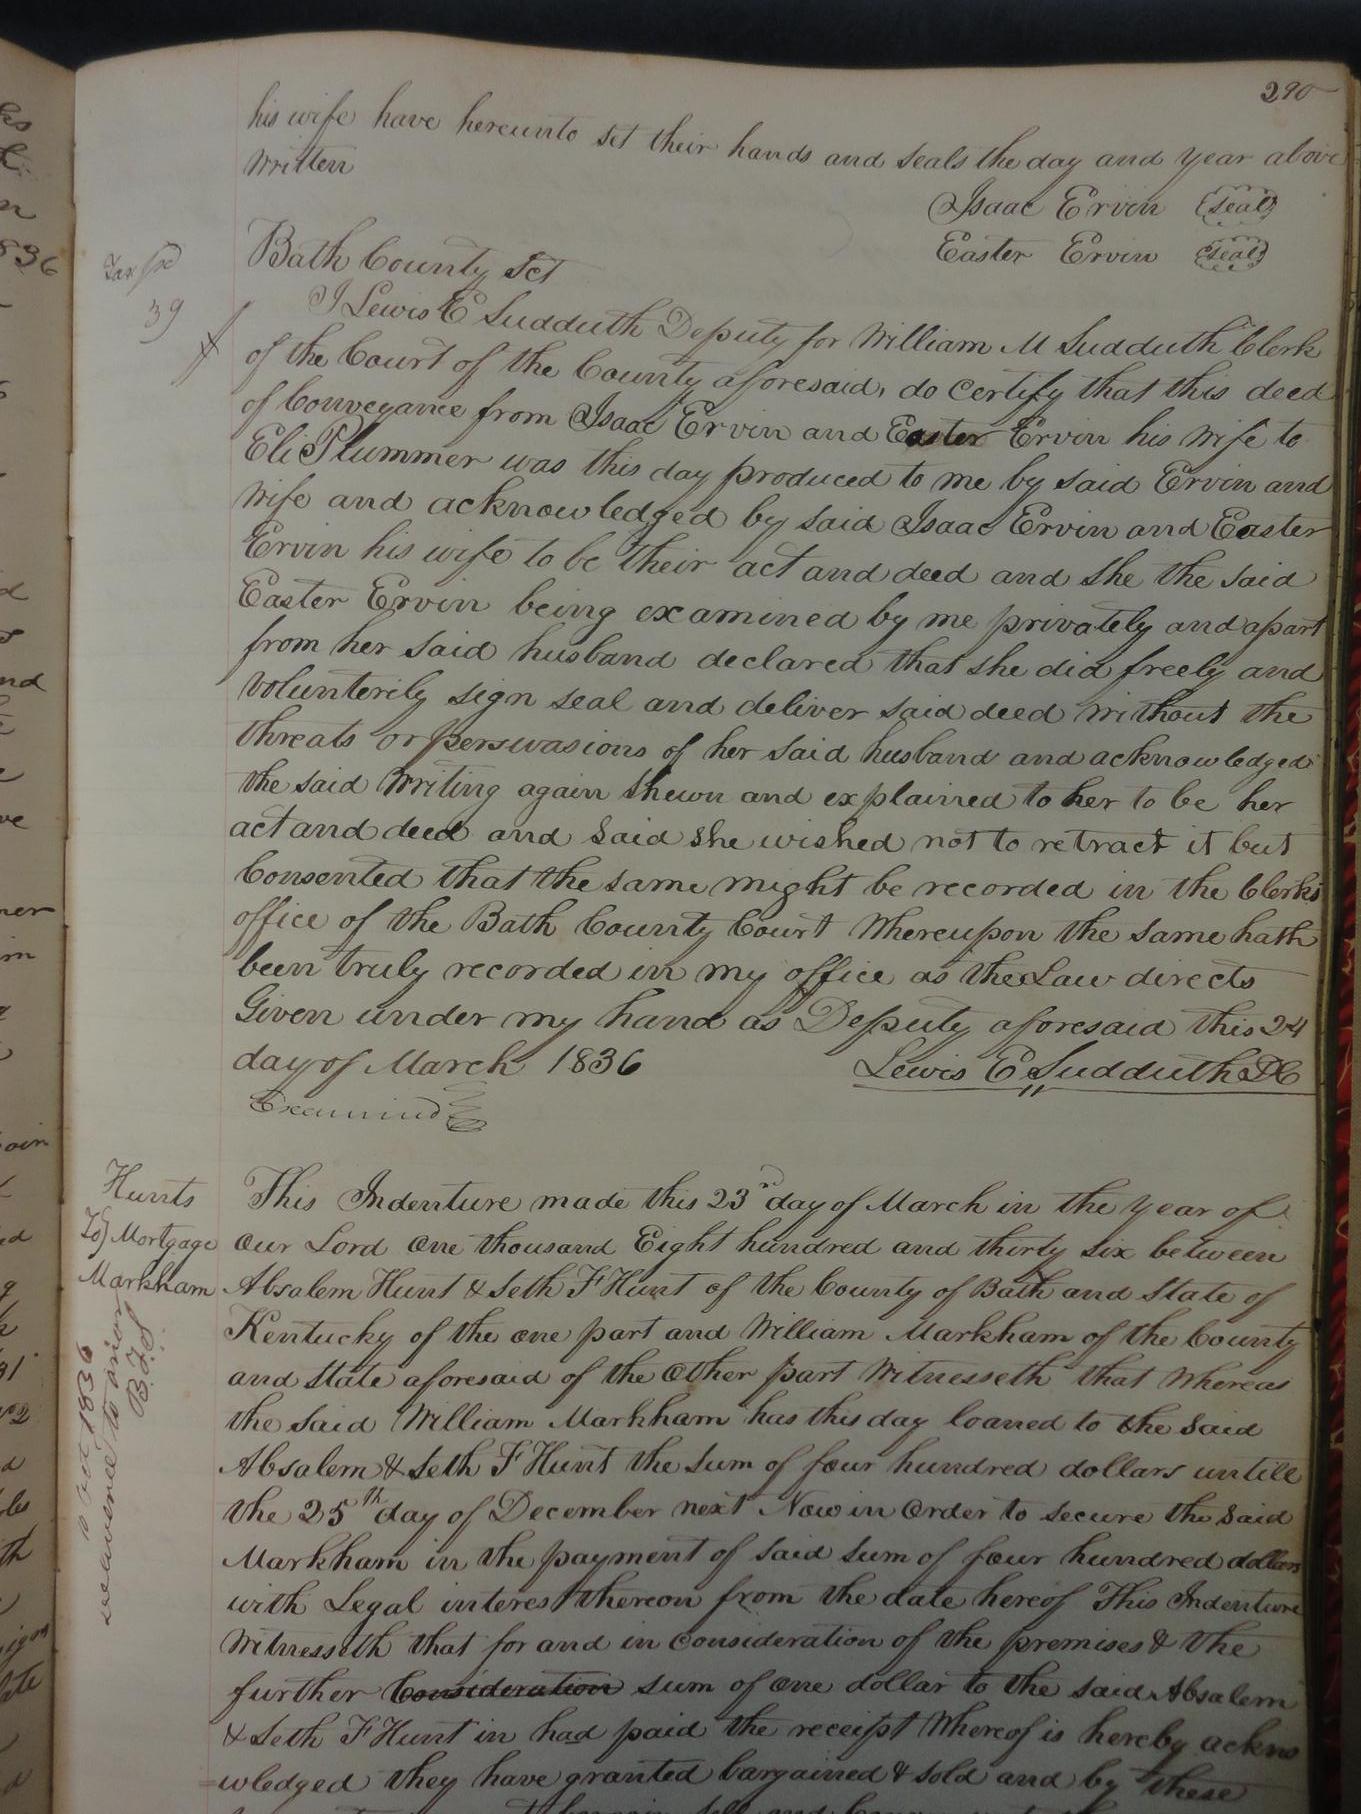 290
his wife have hereunto set their hands and seals the day and year above
written
Isaac Ervin (seal)
Easter Ervin (seal)
Bath County Sct
Tax
39
I Lewis E Sudduth Deputy for William M Sudduth Clerk
of the Court of the County aforesaid, do certify that this deed
of Conveyance from Isaac Ervin and Easter Ervin his wife to
Eli Plummer was this day produced to me by said Ervin and
wife and acknowledged by said Isaac Ervin and Easter
Ervin his wife to be their act and deed and she the said
Easter Ervin being examined by me privately and apart
from her said husband declared that she did freely and
volunterily sign seal and deliver said deed without the
threats or perswasions of her said husband and acknowledged
the said writing again shewn and explained to her to be her
act and deed and said she wished not to retract it but
Consented that the same might be recorded in the Clerks
office of the Bath County Court Whereupon the same hath
been truly recorded in my office as the Law directs
Given under my hand as Deputy aforesaid this 24
day of March 1836
Lewis E Sudduth DC
Examined
Hunts
To} Mortgage
Markham
This Indenture made this 23rd day of March in the year of
our Lord One thousand Eight hundred and thirty six between
Absalem Hunt & Seth F Hunt of the County of Bath and State of
Kentucky of the one part and William Markham of the County
and State aforesaid of the Other part Witnesseth that Whereas
the said William Markham has this day loaned to the said
Absalem & Seth F Hunt the sum of four hundred dollars untill
the 25th day of December next Now in Order to secure the said
Markham in the payment of said sum of four hundred dollars
with Legal interest thereon from the date hereof This Indenture
Witnesseth that for and in Consideration of the premises & the
further Consideration sum of one dollar to the said Absalem
& Seth F Hunt in had paid the receipt Whereof is hereby ackno
=wledged they have granted bargained & sold and by these
1836
to
B.F.S